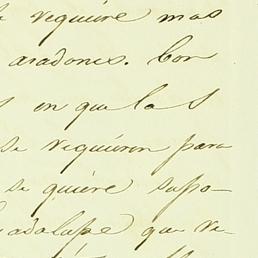 requiere mas
aradones. Con
en que las
se requieren para
se quiere supo-
uadalupe que re-